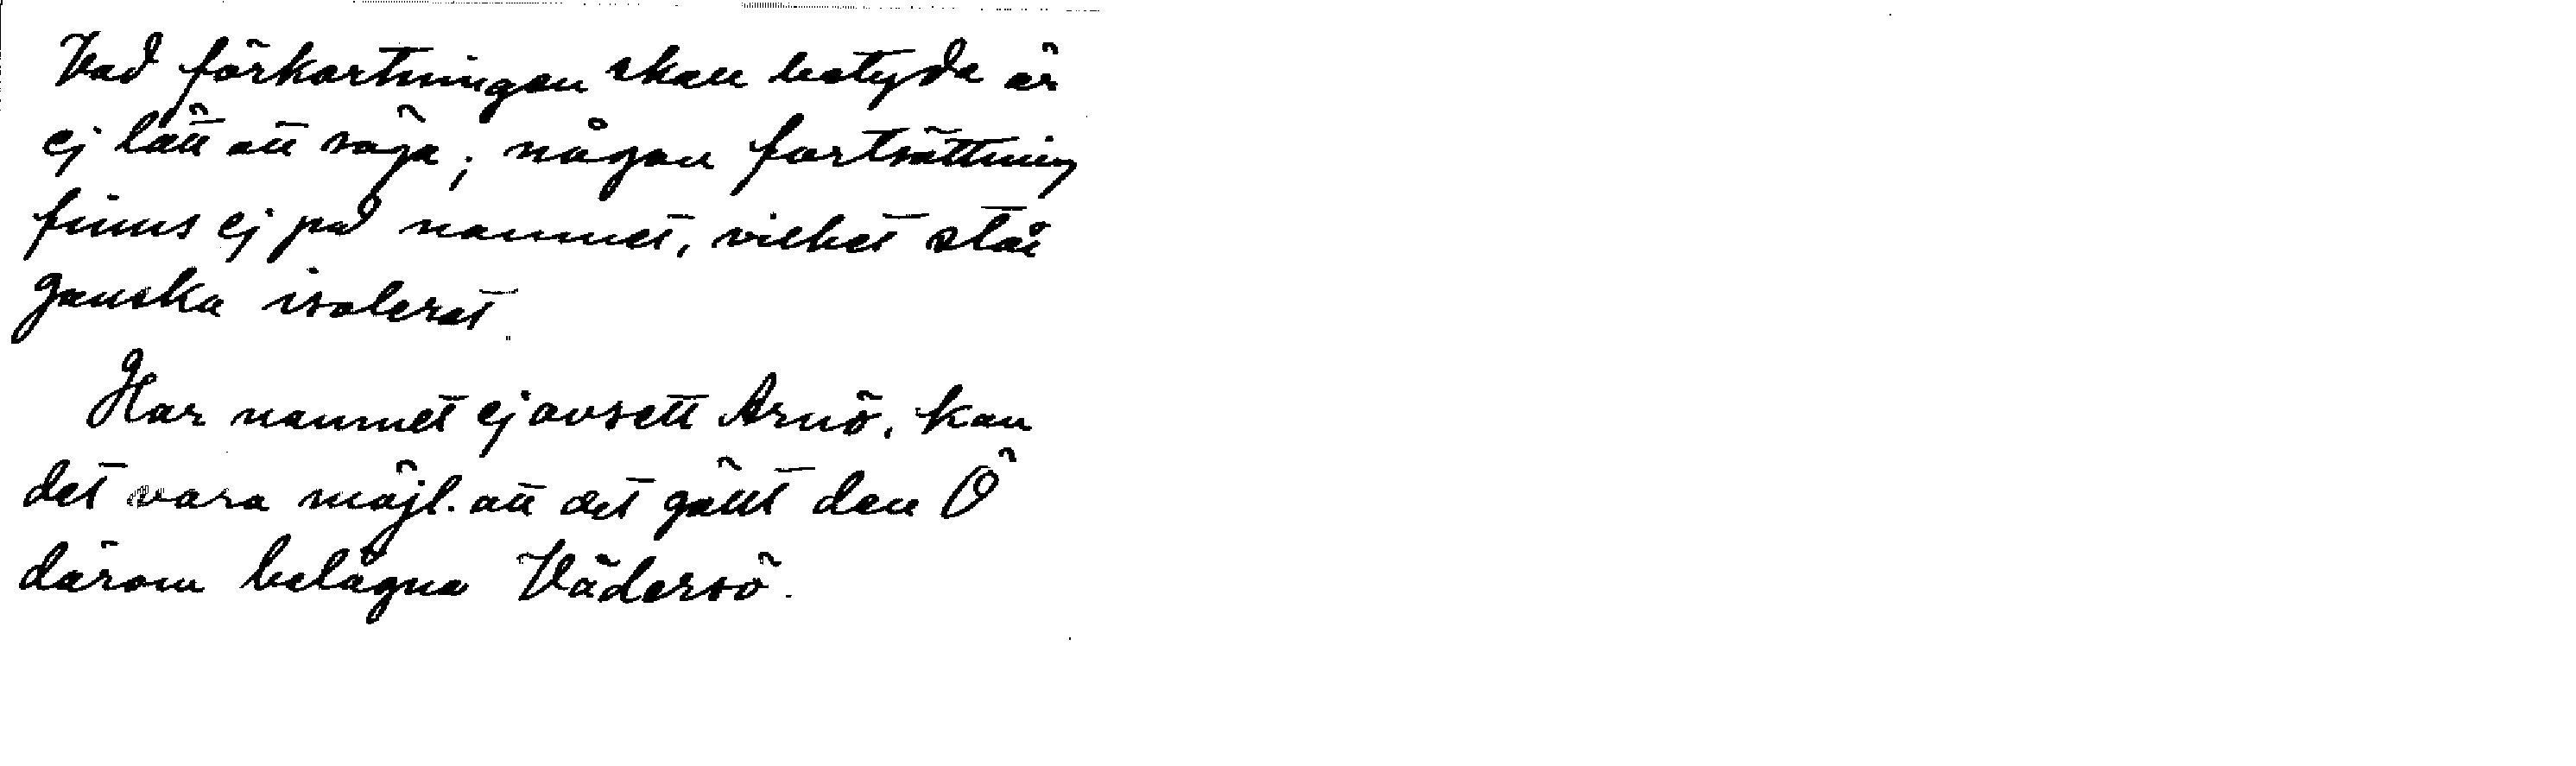 Vad förkortningen skall betyda är
ej lätt att säga; någon fortsättning
finns ej på namnet, vilket står
ganska isolerat.
Har namnet ej avsett Arnö, kan
det vara möjl. att det gällt den Ö
därom belägna Vädersö.